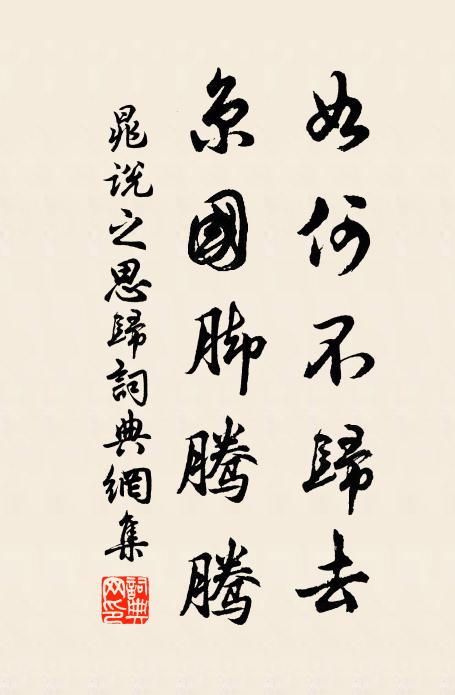 如何不歸去
京國脚騰騰
晁説之思歸詞典網集
詞典网印